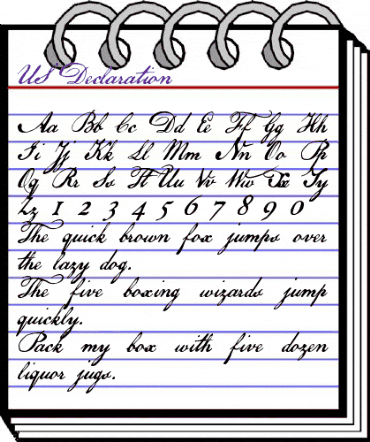 US Declaration
Aa Bb Cc Dd Ee Ff Gg Hh
Ii Jj Kk Ll Mm Nn Oo Pp
Qq Rr Ss Tt Uu Vv Ww Xx Yy
Zz 1 2 3 4 5 6 7 8 9 0
The quick brown fox jumps over
the lazy dog.
The five boxing wizards jump
quickly.
Pack my box with five dozen
liquor jugs.